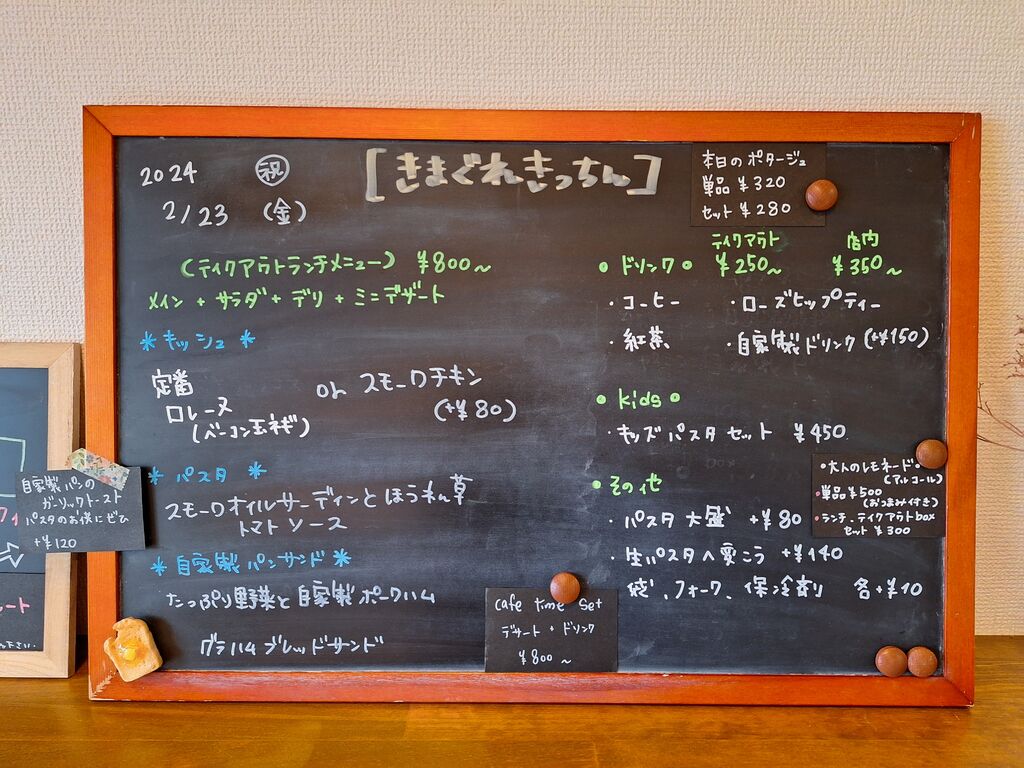 2024 ㊗
2/23 (金)
[きまぐれきっちん]
本日のポタージュ
単品 ¥320
セット ¥280
(テイクアウトランチメニュー) ¥800~
メイン + サラダ + デリ + ミニデザート
*キッシュ*
定番
ロレーヌ
(ベーコン玉ネギ)
or スモークチキン
(+¥80)
*パスタ*
スモークオイルサーディンとほうれん草
トマトソース
*自家製パンサンド*
たっぷり野菜と自家製ポークハム
グラハムブレッドサンド
テイクアウト 店内
●ドリンク● ¥250~ ¥350~
・コーヒー ・ローズヒップティー
・紅茶 ・自家製ドリンク (+¥150)
●kids●
・キッズパスタセット ¥450
●その他
・パスタ大盛 +¥80
・生パスタへ変こう +¥140
袋、フォーク、保冷剤 各+¥10
●大人のレモネード●
(アルコール)
●単品¥500
(おつまみ付き)
●ランチ、テイクアウトbox
セット ¥300
cafe time set
デザート + ドリンク
¥800~
自家製パンの
ガーリックトースト
パスタのお供にぜひ
+¥120
ート
下さい.